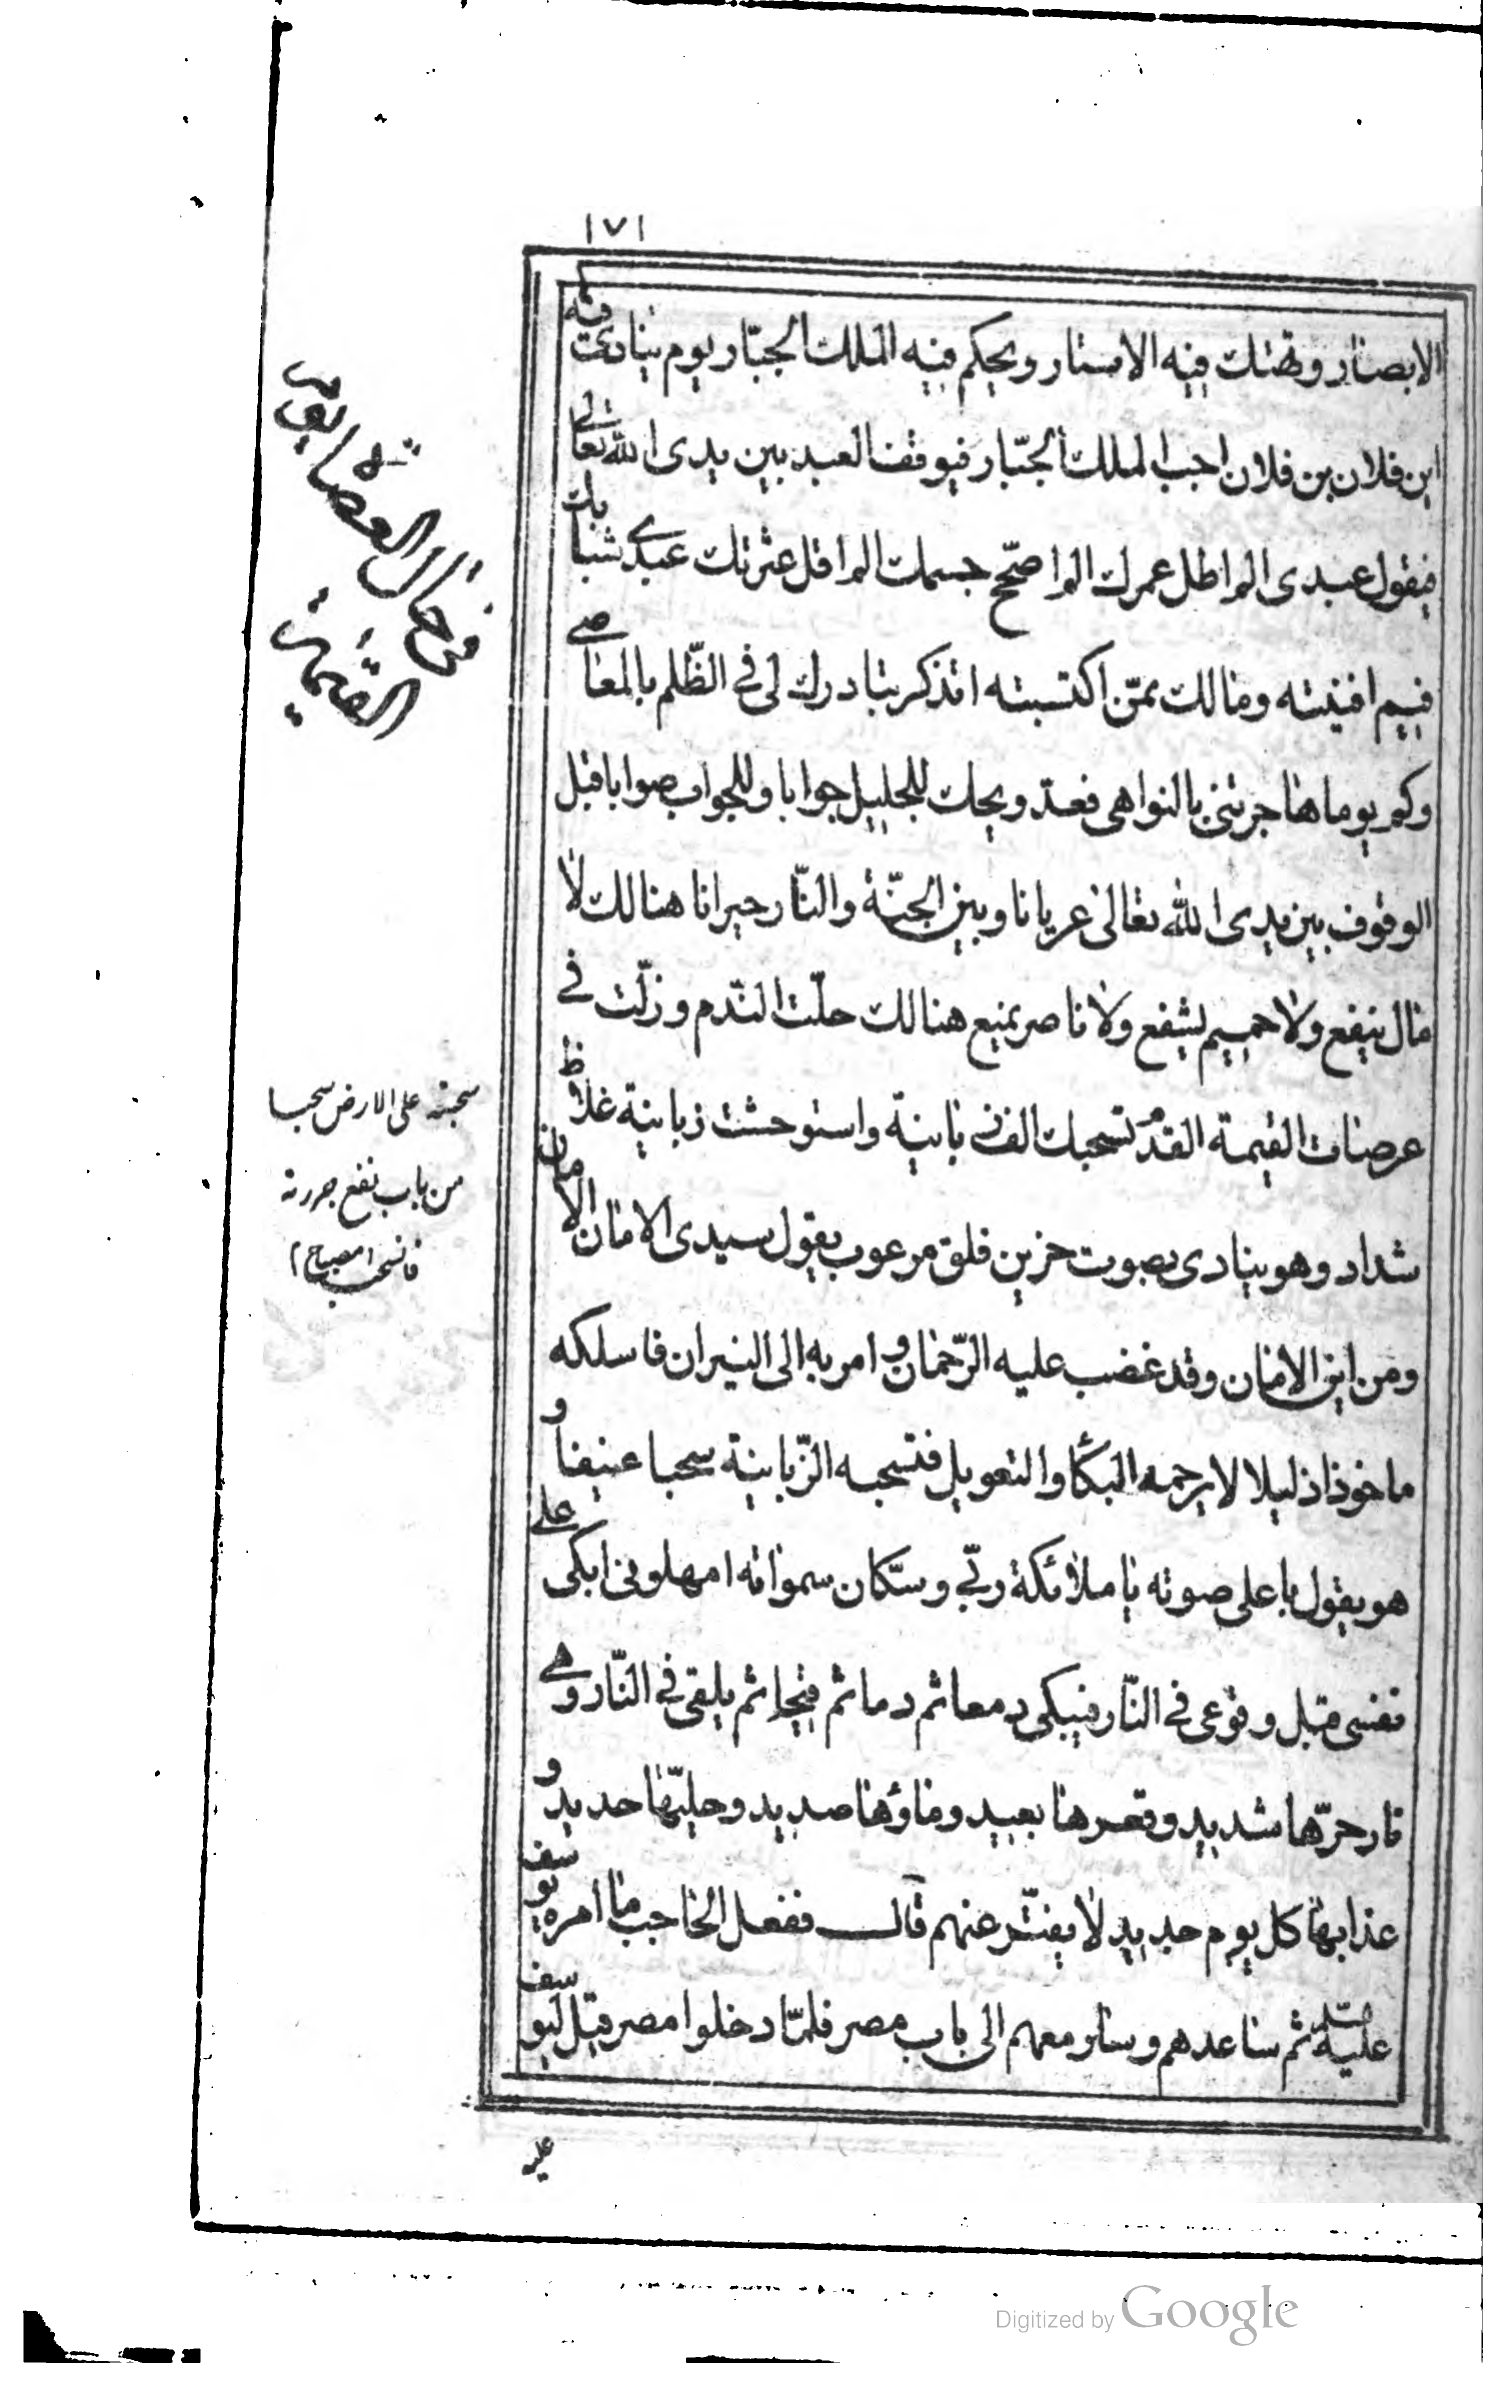 ١٧١
الابصار وتهتك فيه الاستار ويحكم فيه الملك الجبّار يوم ينادى فيه
اين فلان بن فلان اجب الملك الجبّار فيوقف العبد بين يدى الله تعالى
فيقول عبدى الم اطل عمرك الم اصحّح جسمك الم اقل عثرتك عبدى شبابك
فيم افنيته ومالك ممّن اكتسبته اتذكر تبادرك لى فى الظّلم بالمعاصى
وكم يوما هاجرتنى بالنواهى فعد ويحك للجليل جوابا وللجواب صوابا قبل
الوقوف بين يدى الله تعالى عريانا وبين الجنّة والنّار حيرانا هنالك لا
مال ينفع ولا حميم يشفع ولا ناصر يمنع هنالك حلّت الندم وزلّت فى
عرصات القيمة القدم تسحبك الف زبانية واستوحشت زبانية غلاظ
شداد وهو ينادى بصوت حزين قلق مرعوب يقول سيدى الامان الامان
ومن اين الامان وقد غضب عليه الرّحمان وامر به الى النيران فاسلكه
ماخوذا ذليلا لا يرحمه البكآ والتعويل فتسحبه الزّبانية سحبا عنيفا و
هو يقول باعلى صوته يا ملائكة ربّى وسكّان سمواته امهلونى ابكى على
نفسى قبل وقوعى فى النّار فيبكى دمعا ثم دما ثم قيحا ثم يلقى فى النّار وهى
نار حرّها شديد وقعرها بعيد وماؤها صديد وحليّها حديد و
عذابها كل يوم جديد لا يفتّر عنهم قال ففعل الحاجب ما امره يوسف
عليه السّلم ثم ساعدهم وسار معهم الى باب مصر فلمّا دخلوا مصر قيل ليوسف
عليه
فى حال العصاة يوم
القيمة
سحبته على الارض سحبا
من باب نفع جررته
فانسحب (مصباح)
Digitized by Google